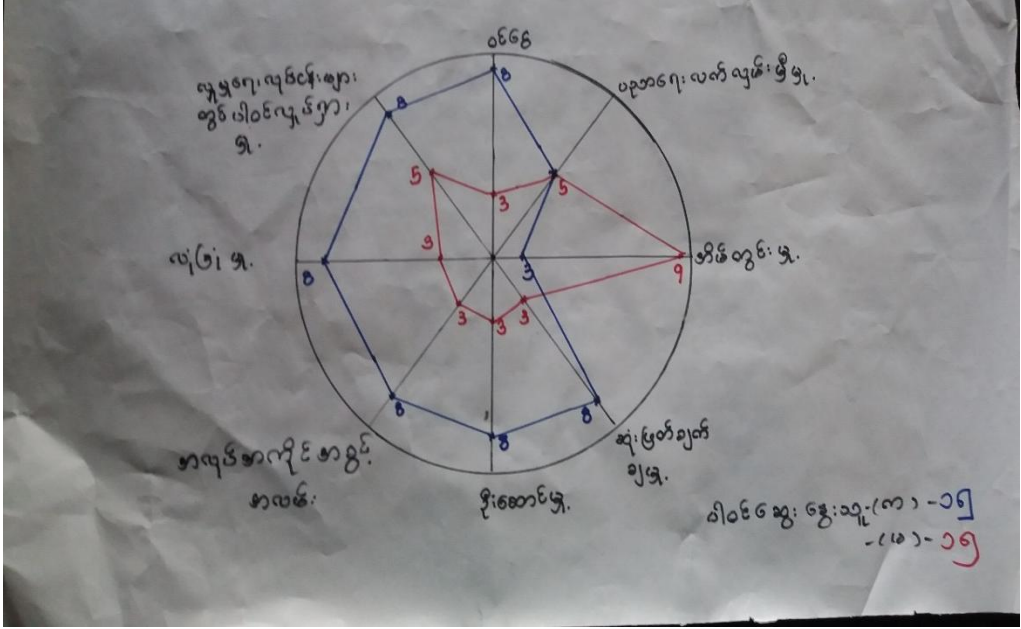 ဝင်ငွေ
ပညာရေး လက်လှမ်းမှီမှု.
အိမ်တွင်းမှု.
ဆုံးဖြတ်ချက်
ချမှု.
ဦးဆောင်မှု.
အလုပ်အကိုင်အခွင့်
အလမ်း
လုံခြုံမှု.
လူမှုရေးလုပ်ငန်းများ
တွင် ပါဝင်လှုပ်ရှား
မှု.
8
8
8
8
8
8
3
5
3
5
3
3
3
3
9
ပါဝင်ဆွေးနွေးသူ-(ကျား) -၁၅
-(မ)- ၁၅